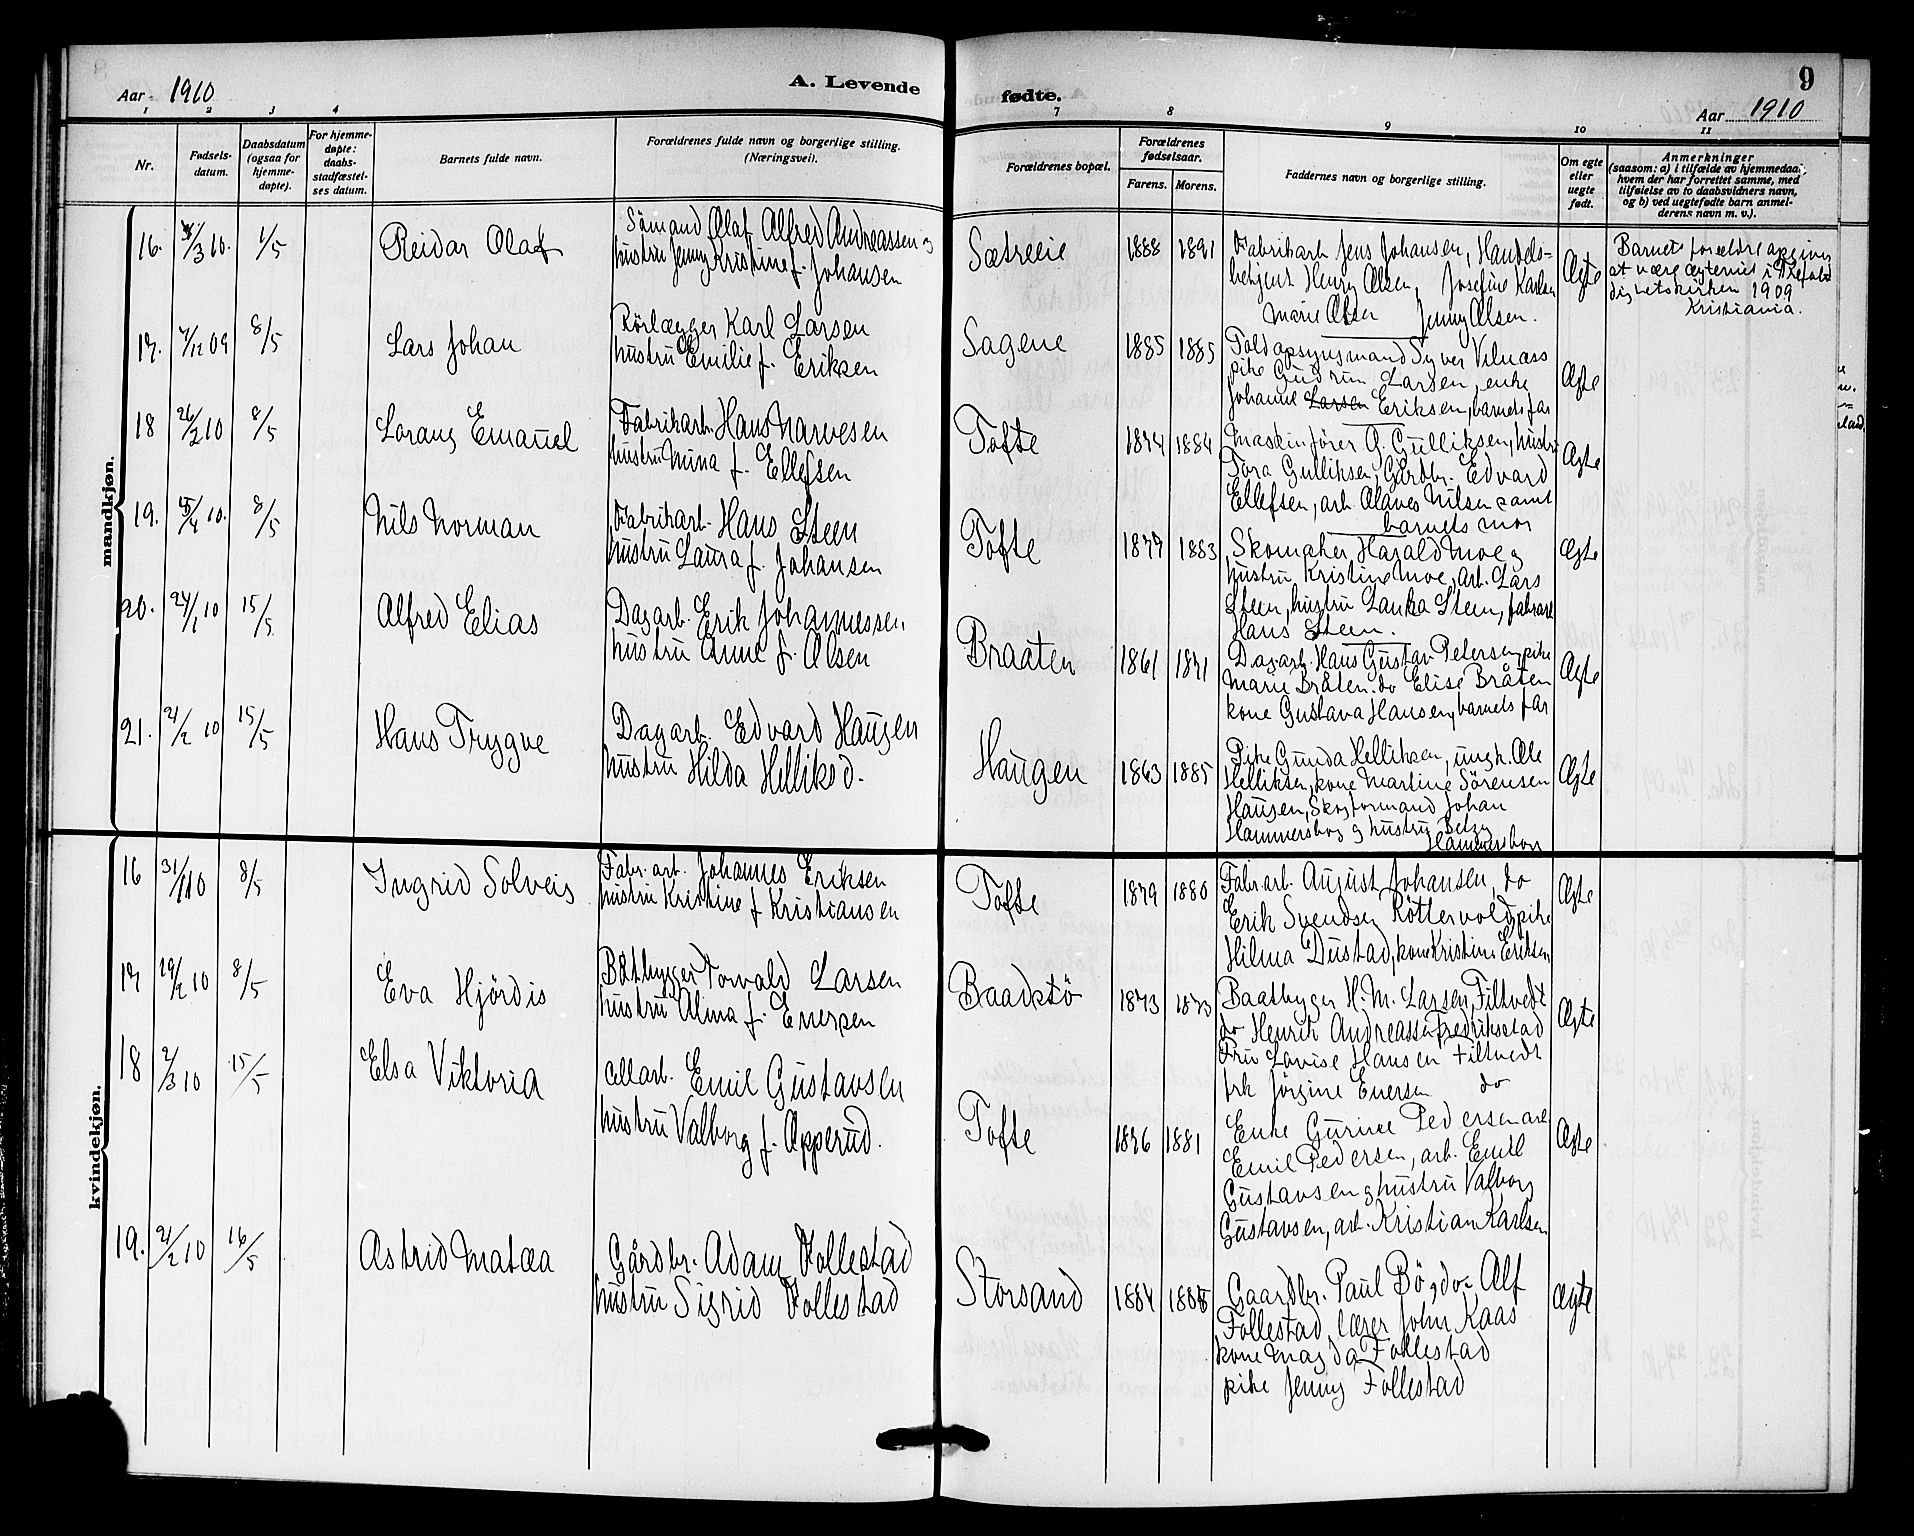 A. Levende
fødte.
9
Aar 1910
Aar 1910
1 2 3 4 7 8 9 10 11
Nr.
Fødsels-
datum.
Daabsdatum
(ogsaa for
hjemme-
døpte).
For hjemme-
døpte:
daabs-
stadfæstel-
ses datum.
Barnets fulde navn.
Forældrenes fulde navn og borgerlige stilling.
(Næringsvei).
Forældrenes bopæl.
Forældrenes
fødselsaar.
Farens. Morens.
Faddernes navn og borgerlige stilling.
Om egte
eller
uegte
født.
Anmerkninger
(saasom: a) i tilfælde av hjemmedaab,
hvem der har forrettet samme, med
tilføielse av to daabsvidners navn,
og b) ved uegtefødte barn anmel-
derens navn m. v.).
mandkjøn.
16. /3 10. 1/5
Reidar Olaf
Sømand Olaf Alfred Andreassen og
hustru Jenny Kristine f. Johansen
Sætreeie
1888 1891
Fabrikarb Jens Johansen, Handels-
betjent Henry Olsen, Josefine Karlsen
Marie Olsen Jenny Olsen.
Ægte
Barnets forældre opgives
at være ægteviet i Trefol-
dighetskirken 1909
Kristiania.
17. 7/12 09 8/5
Lars Johan
Rørlægger Karl Larsen
hustru Emilie f. Eriksen
Sagene
1885 1885
Toldopsynsmand Syver Velnæss
pike Gudrun Larsen, enke
Johanne Larsen Eriksen, barnets far
Ægte
18 26/2 10 8/5
Lorang Emanuel
Fabrikarb. Hans Narvesen
hustru Mina f. Ellefsen
Tofte
1874 1884
Maskinfører A. Gulliksen, hustru
Tora Gulliksen, Gårdbr. Edvard
Ellefsen, arb. Olaves Nilsen samt
barnets mor
Ægte
19. /4 10. 8/5
Nils Norman
Fabrikarb. Hans Steen
hustru Laura f. Johansen
Tofte
1877 1883
Skomaker Harald Moe og
hustru Kristine Moe, arb. Lars
Steen, hustru Lanka Steen, fabrarb
Hans Steen.
Ægte
20. 24/1 10 15/5
Alfred Elias
Dagarb. Erik Johannessen,
hustru Anne f. Olsen
Braaten
1861 1871
Dagarb. Hans Gustav Petersen, pike
Marie Bråten. do Elise Bråten
kone Gustava Hansen, barnets far
Ægte
21. 21/2 10 15/5
Hans Trygve
Dagarb. Edvard Haugen
hustru Hilda Helliksd.
Haugen
1863 1885
Pike Gunda Helliksen, ungk. Ole
Helliksen, kone Martine Sørensen
Haugen, Skogformand Johan
Hammersbog og hustru Betzy
Hammersborg
Ægte
kvindekjøn.
16 31/1 10 8/5
Ingrid Solveig
Fabr. arb. Johannes Eriksen
hustru Kristine f Kristiansen
Tofte
1879 1880
Fabr arb. August Johansen, do
Erik Svendsen Røttervold, pike
Hilma Dustad, kone Kristine Eriksen
Ægte
17 19/2 10 8/5
Eva Hjørdis
Båtbygger Torvald Larsen
hustru Alma f. Enersen
Baadstø
1873 1873
Baatbyger H. M. Larsen, Filtvedt
do Henrik Andreassen Fredriksstad
Fru Lovise Hansen Filtvedt
frk Jørgine Enersen do
Ægte
18 2/3 10 15/5
Elsa Viktoria
cellarb. Emil Gustavsen
hustru Valborg f. Opperud.
Tofte
1876 1881
Enke Gurine Pedersen arb
Emil Pedersen, arb. Emil
Gustavsen og hustru Valborg
Gustavsen, arb. Kristian Karlsen
Ægte
19. 21/2 10 16/5
Astrid Matæa
Gårdbr. Adam Follestad
hustru Sigrid Follestad
Storsand
1884 1888
Gaardbr. Paul Bø, do Alf
Follestad, lærer John Kaas
kone Magda Follestad
pike Jenny Follestad
Ægte